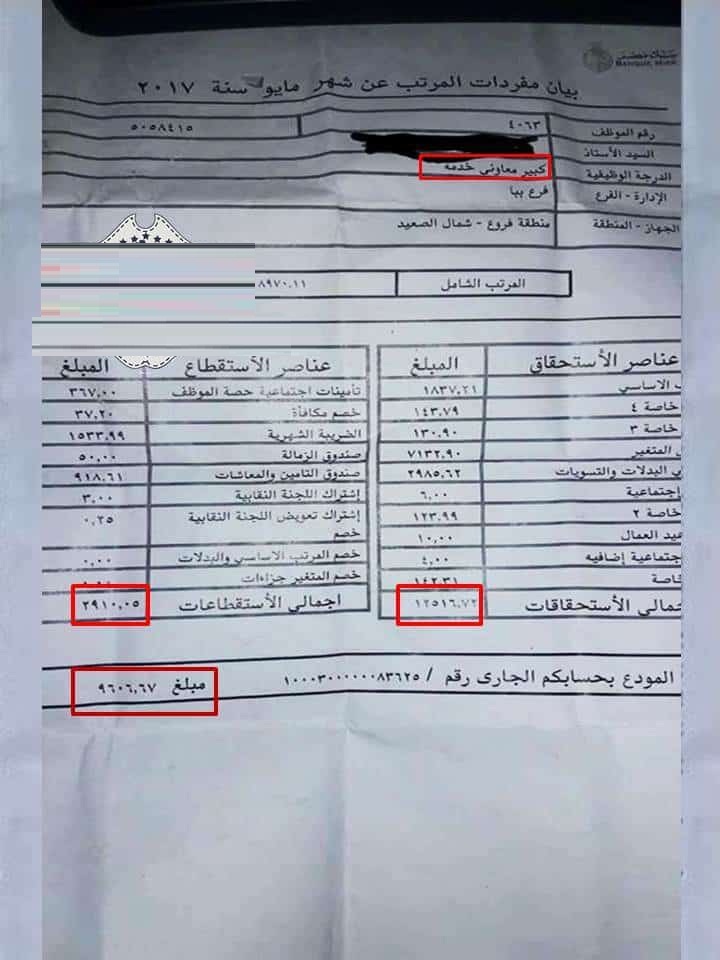 بنك مصر
BANQUE MISR
بيان مفردات المرتب عن شهر مايو سنة ٢٠١٧
رقم الموظف ٤٠٦٣ ٥٠٥٨٤١٥
السيد الأستاذ
الدرجة الوظيفية كبير معاوني خدمه
الإدارة - الفرع فرع ببا
الجهاز - المنطقة منطقة فروع - شمال الصعيد
المرتب الشامل ٨٩٧٠.١١
عناصر الأستحقاق المبلغ عناصر الأستقطاع المبلغ
الاساسي ١٨٣٧,٢١ تأمينات اجتماعية حصة الموظف ٣٦٧,٠٠
خاصة ٤ ١٤٣,٧٩ خصم مكافأة ٣٧,٢٠
خاصة ٣ ١٣٠,٩٠ الضريبة الشهرية ١٥٣٣,٩٩
المتغير ٧١٣٢,٩٠ صندوق الزمالة ٥٠,٠٠
البدلات والتسويات ٢٩٨٥,٦٢ صندوق التامين والمعاشات ٩١٨,٦١
إجتماعية ٦,٠٠ إشتراك اللجنة النقابية ٣,٠٠
خاصة ٢ ١٢٣,٩٩ إشتراك تعويض اللجنة النقابية ٠,٢٥
عيد العمال ١٠,٠٠ خصم
جتماعية إضافيه ٤,٠٠ خصم المرتب الاساسي والبدلات ٠,٠٠
خاصة ١٤٢,٣١ خصم المتغير جزاءات
جمالى الأستحقاقات ١٢٥١٦,٧٢ اجمالى الأستقطاعات ٢٩١٠,٠٥
المودع بحسابكم الجارى رقم / ١٠٠٠٣٠٠٠٠٠٠٨٣٦٢٥ مبلغ ٩٦٠٦,٦٧